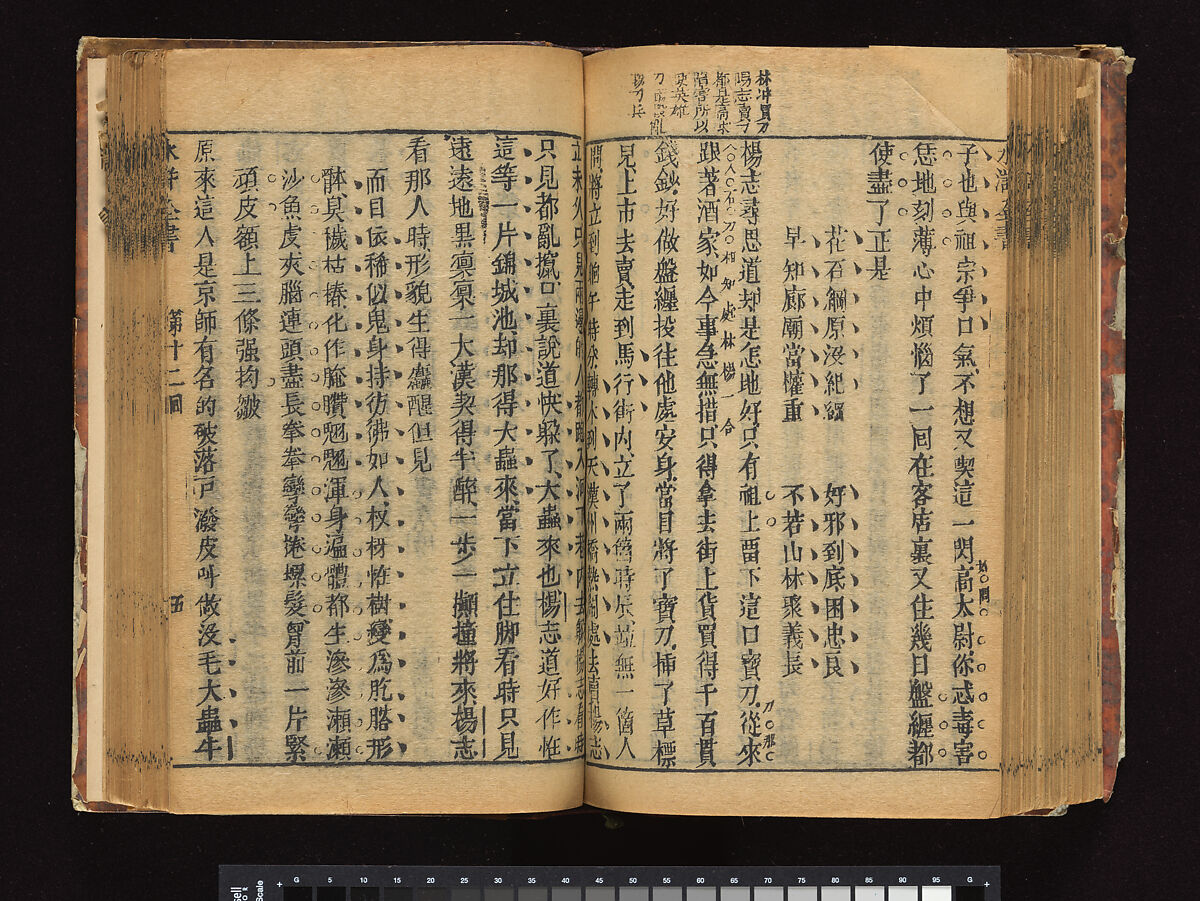 林冲買刀
楊志賣刀
都是高俅
陷害所以
使英雄
水滸全書
子也與祖宗爭口氣不想又喫這一閃高太尉你忒毒害
恁地刻薄心中煩惱了一回在客店裏又住幾日盤纏都
使盡了正是
花石綱原沒紀綱　奸邪到底困忠良
早知廊廟當權重　不若山林聚義長
楊志尋思道却是怎地好只有祖上留下這口寶刀從來
跟著酒家如今事急無措只得拿去街上貨賣得千百貫
錢鈔好做盤纏投往他處安身當日將了寶刀插了草標
兒上市去賣走到馬行街內立了兩箇時辰並無一箇人
問將立到晌午時分轉來到天漢州橋熱鬧處去賣楊志
立未久只見兩邊的人都跑入河下巷內去躲楊志看時
只見都亂攛口裏說道快躲了大蟲來也楊志道好作怪
這等一片錦城池却那得大蟲來當下立住脚看時只見
遠遠地黑凜凜一大漢喫得半醉一步一攧撞將來楊志
看那人時形貌生得麤醜但見
面目依稀似鬼身持彷彿如人杈枒怪樹變爲胳𦚾形
骸臭穢枯樁化作腌臢魍魎渾身遍體都生滲滲瀨瀨
沙魚皮夾腦連頭盡長拳拳彎彎捲螺髮胷前一片緊
頑皮額上三條强拗皺
原來這人是京師有名的破落戸潑皮叫做沒毛大蟲牛
水滸全書　第十二回　五